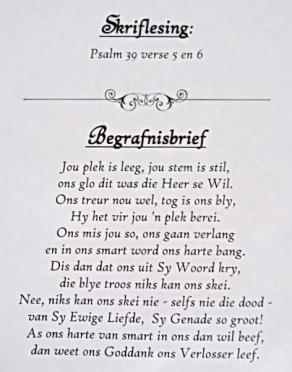 Skriflesing:
Psalm 39 verse 5 en 6
Begrafnisbrief
Jou plek is leeg, jou stem is stil,
ons glo dit was die Heer se Wil.
Ons treur nou wel, tog is ons bly,
Hy het vir jou 'n plek berei.
Ons mis jou so, ons gaan verlang
en in ons smart word ons harte bang.
Dis dan dat ons uit Sy Woord kry,
die blye troos niks kan ons skei.
Nee, niks kan ons skei nie - selfs nie die dood -
van Sy Ewige Liefde, Sy Genade so groot!
As ons harte van smart in ons dan wil beef,
dan weet ons Goddank ons Verlosser leef.